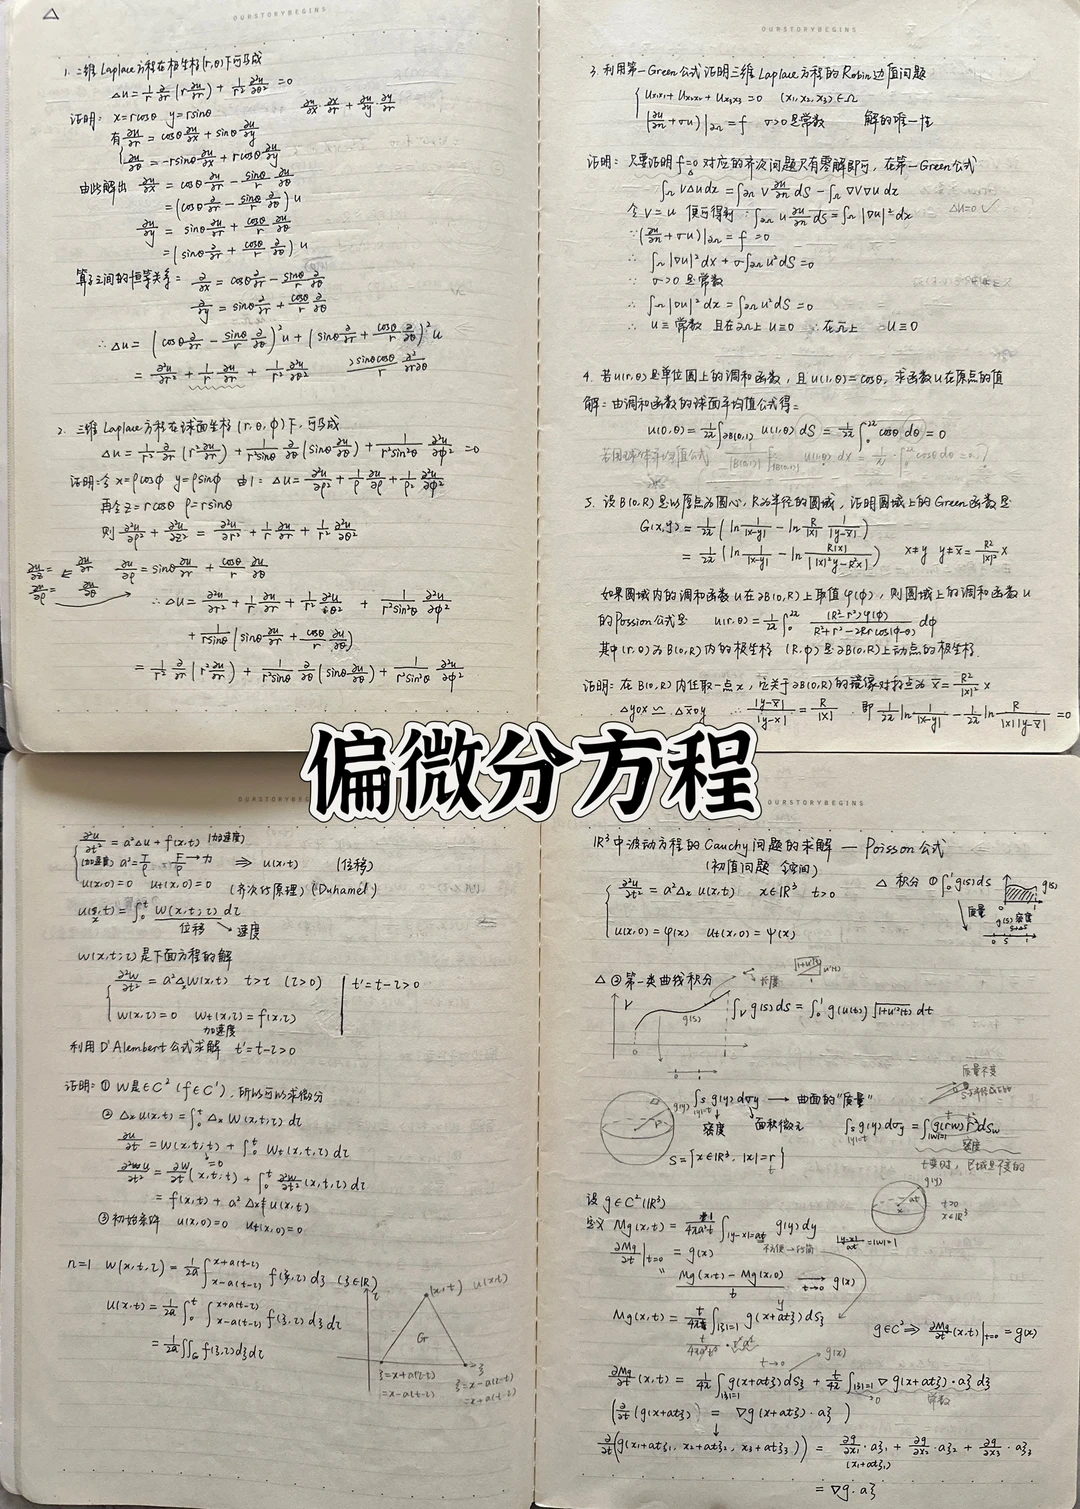 OURSTORYBEGINS
1. 二维Laplace方程在极坐标(r,θ)下可写成
Δu = 1/r ∂/∂r (r ∂u/∂r) + 1/r² ∂²u/∂θ² = 0
证明: x = rcosθ y = rsinθ
有 ∂u/∂r = cosθ ∂u/∂x + sinθ ∂u/∂y
∂u/∂θ = -rsinθ ∂u/∂x + rcosθ ∂u/∂y
由此解出 ∂u/∂x = cosθ ∂u/∂r - sinθ/r ∂u/∂θ
= (cosθ ∂/∂r - sinθ/r ∂/∂θ) u
∂u/∂y = sinθ ∂u/∂r + cosθ/r ∂u/∂θ
= (sinθ ∂/∂r + cosθ/r ∂/∂θ) u
算子之间的恒等关系: ∂/∂x = cosθ ∂/∂r - sinθ/r ∂/∂θ
∂/∂y = sinθ ∂/∂r + cosθ/r ∂/∂θ
∴ Δu = (cosθ ∂/∂r - sinθ/r ∂/∂θ)² u + (sinθ ∂/∂r + cosθ/r ∂/∂θ)² u
= ∂²u/∂r² + 1/r ∂u/∂r + 1/r² ∂²u/∂θ² 2sinθcosθ/r ∂²/∂r∂θ
2. 三维Laplace方程在球面坐标(r,θ,φ)下,可写成
Δu = 1/r² ∂/∂r (r² ∂u/∂r) + 1/r²sinθ ∂/∂θ (sinθ ∂u/∂θ) + 1/r²sin²θ ∂²u/∂φ² = 0
证明: 令 x = ρcosφ y = ρsinφ 由1: Δu = ∂²u/∂ρ² + 1/ρ ∂u/∂ρ + 1/ρ² ∂²u/∂φ²
再令 z = rcosθ ρ = rsinθ
则 ∂²u/∂ρ² + ∂²u/∂z² = ∂²u/∂r² + 1/r ∂u/∂r + 1/r² ∂²u/∂θ²
∂u/∂ρ = sinθ ∂u/∂r + cosθ/r ∂u/∂θ
∴ Δu = ∂²u/∂r² + 1/r ∂u/∂r + 1/r² ∂²u/∂θ² + 1/r²sin²θ ∂²u/∂φ²
+ 1/rsinθ (sinθ ∂u/∂r + cosθ/r ∂u/∂θ)
= 1/r² ∂/∂r (r² ∂u/∂r) + 1/r²sinθ ∂/∂θ (sinθ ∂u/∂θ) + 1/r²sin²θ ∂²u/∂φ²
OURSTORYBEGINS
3. 利用第一Green公式证明三维Laplace方程的Robin边值问题
u_x₁x₁ + u_x₂x₂ + u_x₃x₃ = 0 (x₁,x₂,x₃)∈Ω
(∂u/∂n + σu)|∂Ω = f σ>0是常数 解的唯一性
证明: 只要证明 f=0 对应的齐次问题只有零解即可, 在第一Green公式
∫Ω vΔu dx = ∫∂Ω v ∂u/∂n dS - ∫Ω ∇v∇u dx
令 v = u 便可得到: ∫∂Ω u ∂u/∂n dS = ∫Ω |∇u|² dx Δu=0 ✓
∵ (∂u/∂n + σu)|∂Ω = f = 0
∴ ∫Ω |∇u|² dx + σ∫∂Ω u² dS = 0
∵ σ>0 是常数
∴ ∫Ω |∇u|² dx = ∫∂Ω u² dS = 0
∴ u ≡ 常数 且在∂Ω上 u≡0 ∴ 在Ω上 u≡0
4. 若u(r,θ)是单位圆上的调和函数, 且u(1,θ)=cosθ, 求函数u在原点的值
解: 由调和函数的球面平均值公式得:
u(0,θ) = 1/2π ∫∂B(0,1) u(1,θ) dS = 1/2π ∫₀^2π cosθ dθ = 0
5. 设B(0,R)是以原点为圆心, R为半径的圆域, 证明圆域上的Green函数是
G(x,y) = 1/2π (ln 1/|x-y| - ln R/|x| 1/|y-x̄|)
= 1/2π (ln 1/|x-y| - ln R|x|/||x|²y-R²x|) x≠y y≠x̄= R²/|x|² x
如果圆域内的调和函数u在∂B(0,R)上取值φ(φ), 则圆域上的调和函数u
的Possion公式是 u(r,θ) = 1/2π ∫₀^2π (R²-r²)φ(φ)/R²+r²-2Rrcos(φ-θ) dφ
其中(r,θ)为B(0,R)内的极坐标 (R,φ)是∂B(0,R)上动点的极坐标.
证明: 在B(0,R)内任取一点x, 它关于∂B(0,R)的镜像对称点为 x̄ = R²/|x|² x
△yox ∽ △x̄oy ∴ |y-x̄|/|y-x| = R/|x| 即 1/2π ln 1/|x-y| - 1/2π ln R/|x||y-x̄| = 0
偏微分方程
∂²u/∂t² = a²Δu + f(x,t) (加速度)
(加速度) a² = T/ρ F/ρ → 力 ⇒ u(x,t) (位移)
u(x,0)=0 u_t(x,0)=0 (齐次化原理) (Duhamel)
u(x,t) = ∫₀^t w(x,t;τ) dτ
位移 速度
w(x,t;τ)是下面方程的解
∂²w/∂t² = a²Δₓw(x,t) t>τ (τ>0) t'=t-τ>0
w(x,τ)=0 w_t(x,τ)=f(x,τ)
加速度
利用D'Alembert公式求解 t'=t-τ>0
证明: ① w是∈C² (f∈C¹), 所以可以求微分
② Δₓu(x,t) = ∫₀^t Δₓ w(x,t;τ) dτ
∂u/∂t = w(x,t;t) + ∫₀^t w_t(x,t,τ) dτ
=0
∂²u/∂t² = ∂w/∂t (x,t;t) + ∫₀^t ∂²w/∂t² (x,t,τ) dτ
= f(x,t) + a²Δₓu(x,t)
③ 初始条件 u(x,0)=0 u_t(x,0)=0
n=1 w(x,t,τ) = 1/2a ∫_{x-a(t-τ)}^{x+a(t-τ)} f(ξ,τ) dξ (ξ∈R)
(x,t) u(x,t)
u(x,t) = 1/2a ∫₀^t ∫_{x-a(t-τ)}^{x+a(t-τ)} f(ξ,τ) dξ dτ
G
= 1/2a ∬_G f(ξ,τ) dξdτ
OURSTORYBEGINS
R³中波动方程的Cauchy问题的求解 — Poisson公式
∂²u/∂t² = a²Δₓu(x,t) x∈R³ t>0
u(x,0)=φ(x) u_t(x,0)=ψ(x)
△ 积分 ① ∫₀¹ g(s) ds
质量
△ ② 第一类曲线积分
长度
∫_V g(s) ds = ∫₀¹ g(u(t)) √(1+u'²(t)) dt
∫_S g(y) dσ_y → 曲面的"质量"
密度 面积微元
S = {x∈R³, |x|=t}
设 g∈C²(R³)
定义 Mg(x,t) = 1/4πa²t ∫_{|y-x|=at} g(y) dy
∂Mg/∂t |_{t=0} = g(x)
Mg(x,t) - Mg(x,0) / t → g(x)
t→0
Mg(x,t) = t/4π ∫_{|ξ|=1} g(x+atξ) dS_ξ
g∈C² ⇒ ∂Mg/∂t (x,t)|_{t=0} = g(x)
∂Mg/∂t (x,t) = 1/4π ∫_{|ξ|=1} g(x+atξ) dS_ξ + t/4π ∫_{|ξ|=1} ∇g(x+atξ)·aξ dξ
(∂/∂t (g(x+atξ)) = ∇g(x+atξ)·aξ)
∂/∂t (g(x₁+atξ₁, x₂+atξ₂, x₃+atξ₃)) = ∂g/∂x₁·aξ₁ + ∂g/∂x₂·aξ₂ + ∂g/∂x₃·aξ₃
(x₁+atξ₁)
= ∇g·aξ